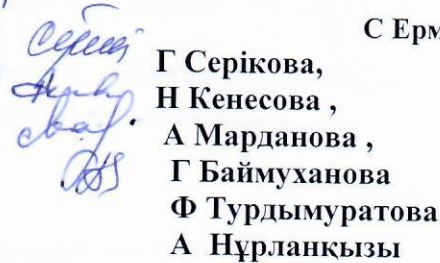 С Ерм
Г Серікова,
Н Кенесова ,
А Марданова ,
Г Баймуханова
Ф Турдымуратова
А Нұрланқызы